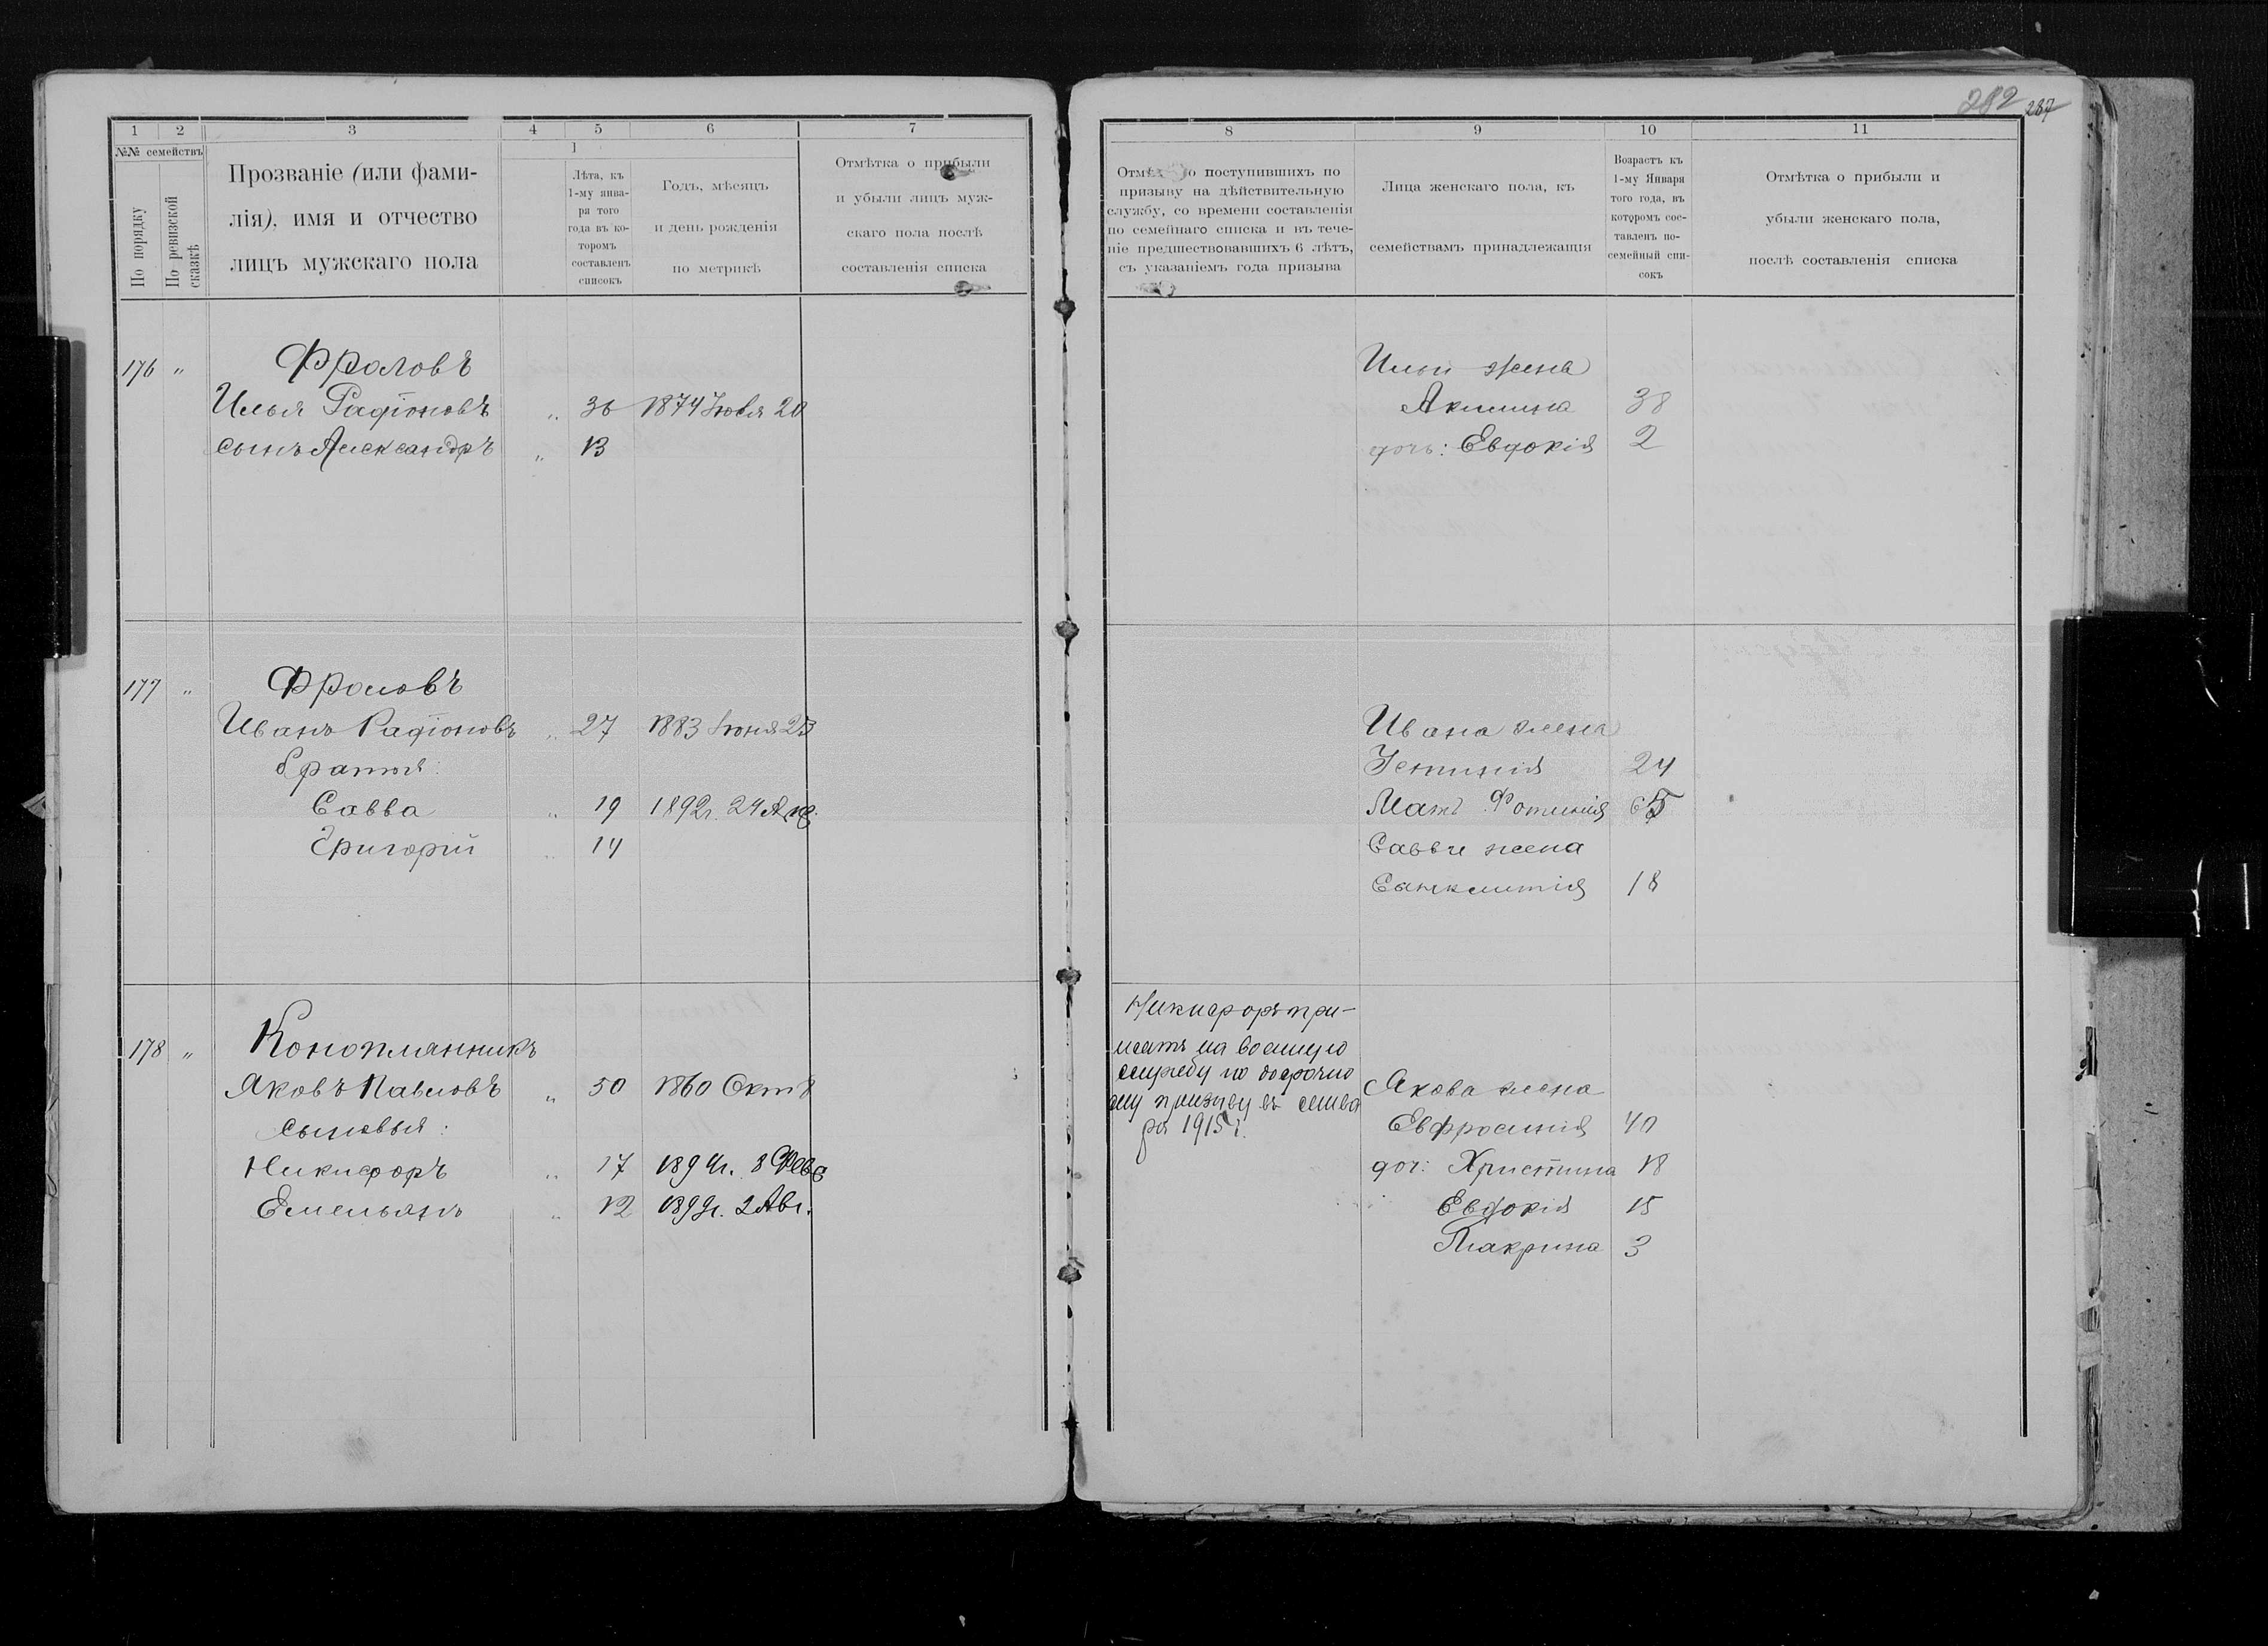 282 287
1 2 3 4 5 6 7
№№ семействъ
По порядку
По ревизской сказкѣ
Прозваніе (или фами-
лія), имя и отчество
лицъ мужскаго пола
1
Лѣта, къ
1-му янва-
ря того
года въ ко-
торомъ
составленъ
списокъ
Годъ, мѣсяцъ
и день рожденія
по метрикѣ
Отмѣтка о прибыли
и убыли лицъ муж-
скаго пола послѣ
составленія списка
176 " Фроловъ
Илья Радіоновъ " 36 1874 Іюля 20
сынъ Александръ " 13
177 " Фроловъ
Иванъ Радіоновъ " 27 1883 Іюня 23
братья:
Савва " 19 1892г. 24
Григорій " 14
178 " Конопляникъ
Яковъ Павловъ " 50 1860 Окт 8
сыновья:
Никифоръ " 17 1894г. 8 Фев
Емельянъ " 12 1899г. 2 Авг.
8 9 10 11
о поступившихъ по
призыву на дѣйствительную
службу, со времени составленія
по семейнаго списка и въ тече-
ніе предшествовавшихъ 6 лѣтъ,
съ указаніемъ года призыва
Лица женскаго пола, къ
семействамъ принадлежащія
Возрастъ къ
1-му Января
того года, въ
которомъ сос-
тавленъ по-
семейный спи-
сокъ
Отмѣтка о прибыли и
убыли женскаго пола,
послѣ составленія списка
Ильи жена
Акилина 38
дочь: Евдокія 2
Ивана жена
Устинія 24
Мать Фотинія 65
Саввы жена
18
Никифоръ при-
нятъ на военную
службу по досрочно
му призыву въ янва
ря 1915 г.
Якова жена
Евфросинія 40
доч: Христина 18
Евдокія 15
Макрина 3